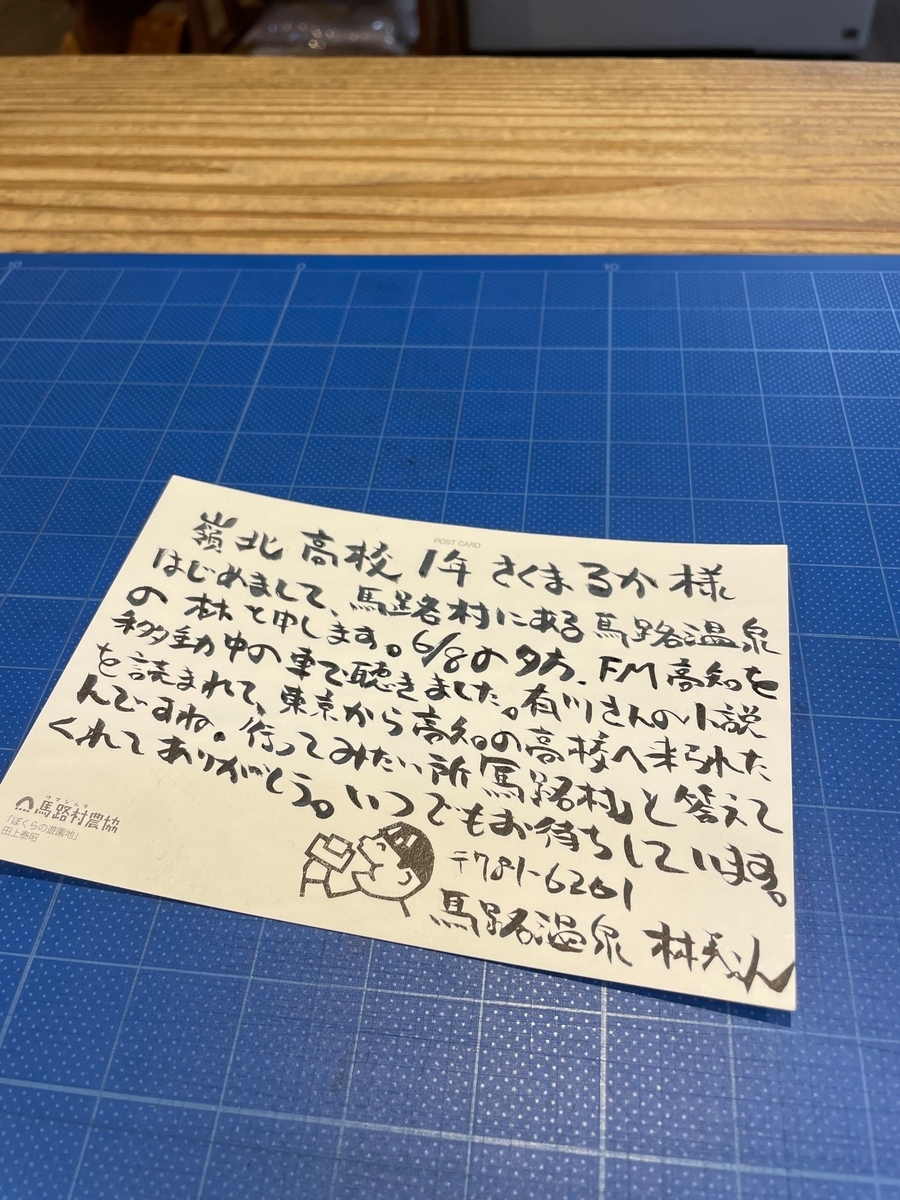 POST CARD
嶺北高校1年さくまるか様
はじめまして、馬路村にある馬路温泉
の林と申します。6/8の夕方、FM高知を
移動中の車で聴きました。有川さんの小説
を読まれて、東京から高知の高校へ来られた
んですね。行ってみたい所「馬路村」と答えて
くれてありがとう。いつでもお待ちしています。
〒781-6201
馬路温泉 林
ウマジムラ
馬路村農協
「ぼくらの遊園地」
田上泰昭